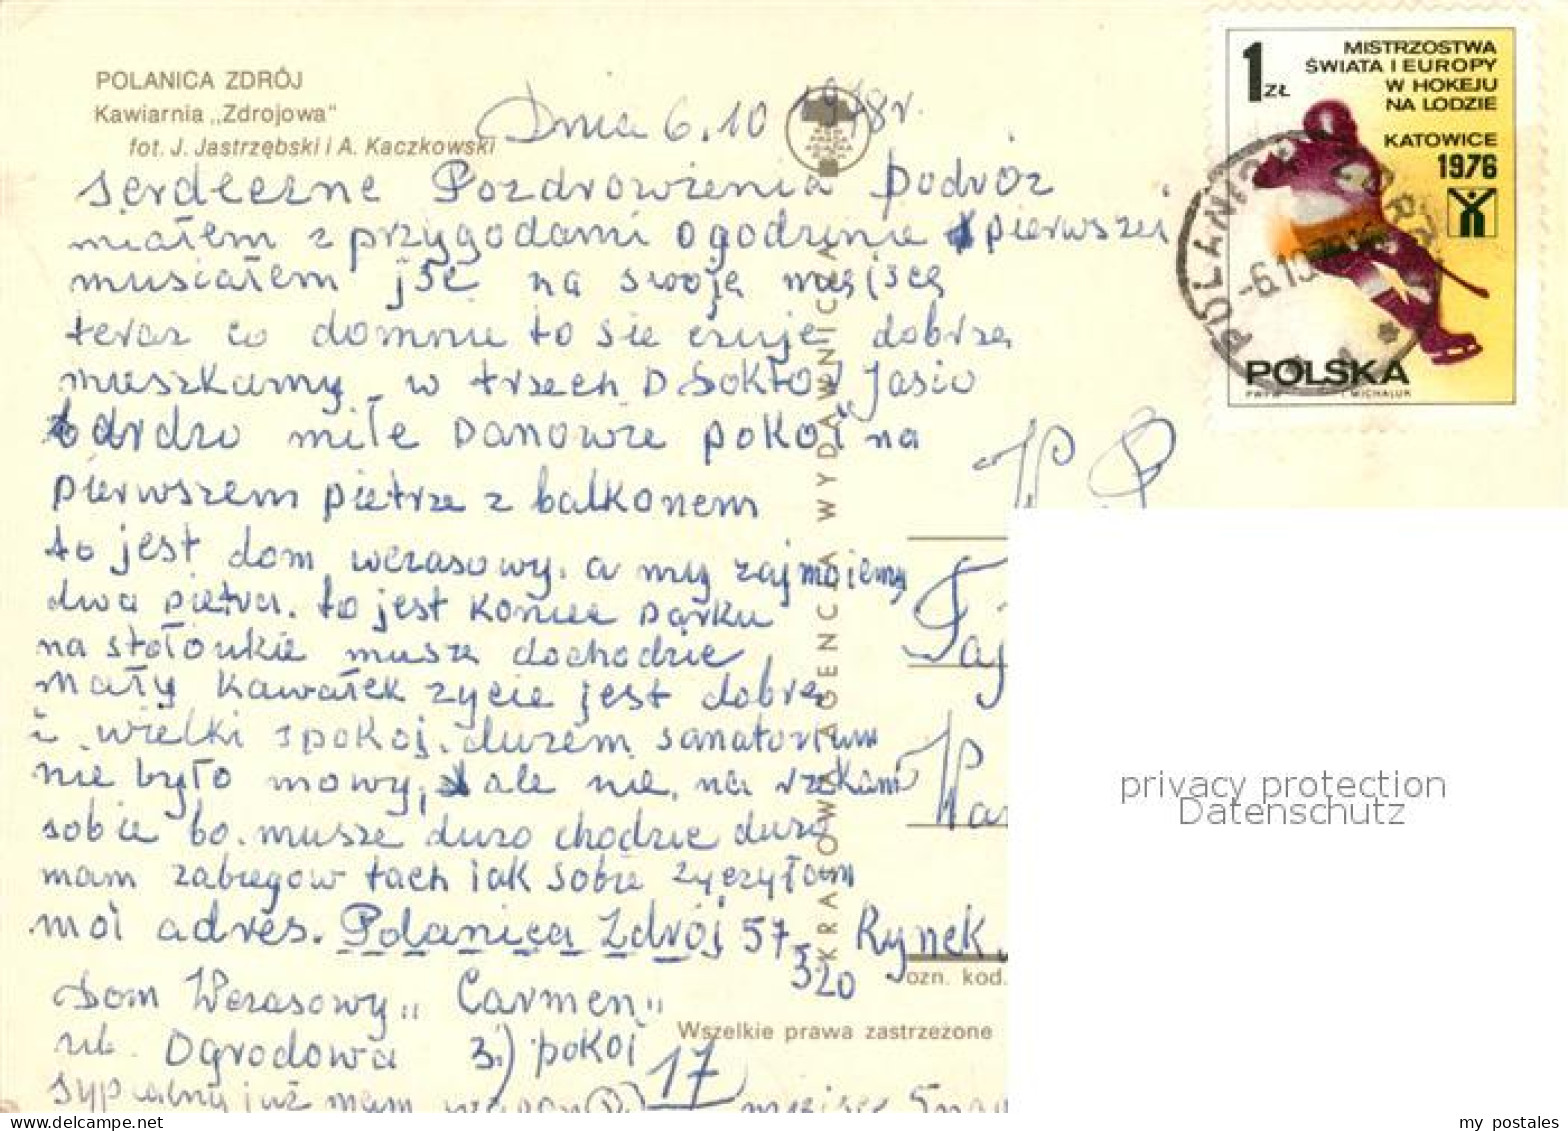 POLANICA ZDRÓJ
Kawiarnia „Zdrojowa"
fot. J. Jastrzębski i A. Kaczkowski
Dnia 6.10 1978r.
serdeczne Pozdrowienia podróż
miałem z przygodami o godzinie pierwszej
musiałem jść na swoje miejsce
teraz co domnie to sie czuje dobrze
mieszkamy w trzech D. Sokłow Jasio
bardzo miłe Danowie pokoi na
pierwszem pietrze z balkonem
to jest dom wczasowy. a my zajmoiemy
dwa pietra. to jest koniec parku
na stołowkie musze dochodzic
mały kawałek zycie jest dobre
i wielki spokoj. duzem sanatorium
nie było mowy, ale nie na rzekam
sobie bo. musze duzo chodzic duzo
mam zabiegow tach iak sobie zyczyłam
moi adres. Polanica Zdrój 57
320
Dom Wczasowy „Carmen"
ul. Ogrodowa 3.) pokoi 17
sypialny już mam miejsce
KRAJOWA AGENCJA WYDAWNICZA
1 ZŁ
MISTRZOSTWA
ŚWIATA I EUROPY
W HOKEJU
NA LODZIE
KATOWICE
1976
POLSKA
PWPW
MICHALUK
POLANICA ZDRÓJ
-6.10
W P
Rynek
ozn. kod.
Wszelkie prawa zastrzeżone
privacy protection
Datenschutz
www.delcampe.net
my_postales